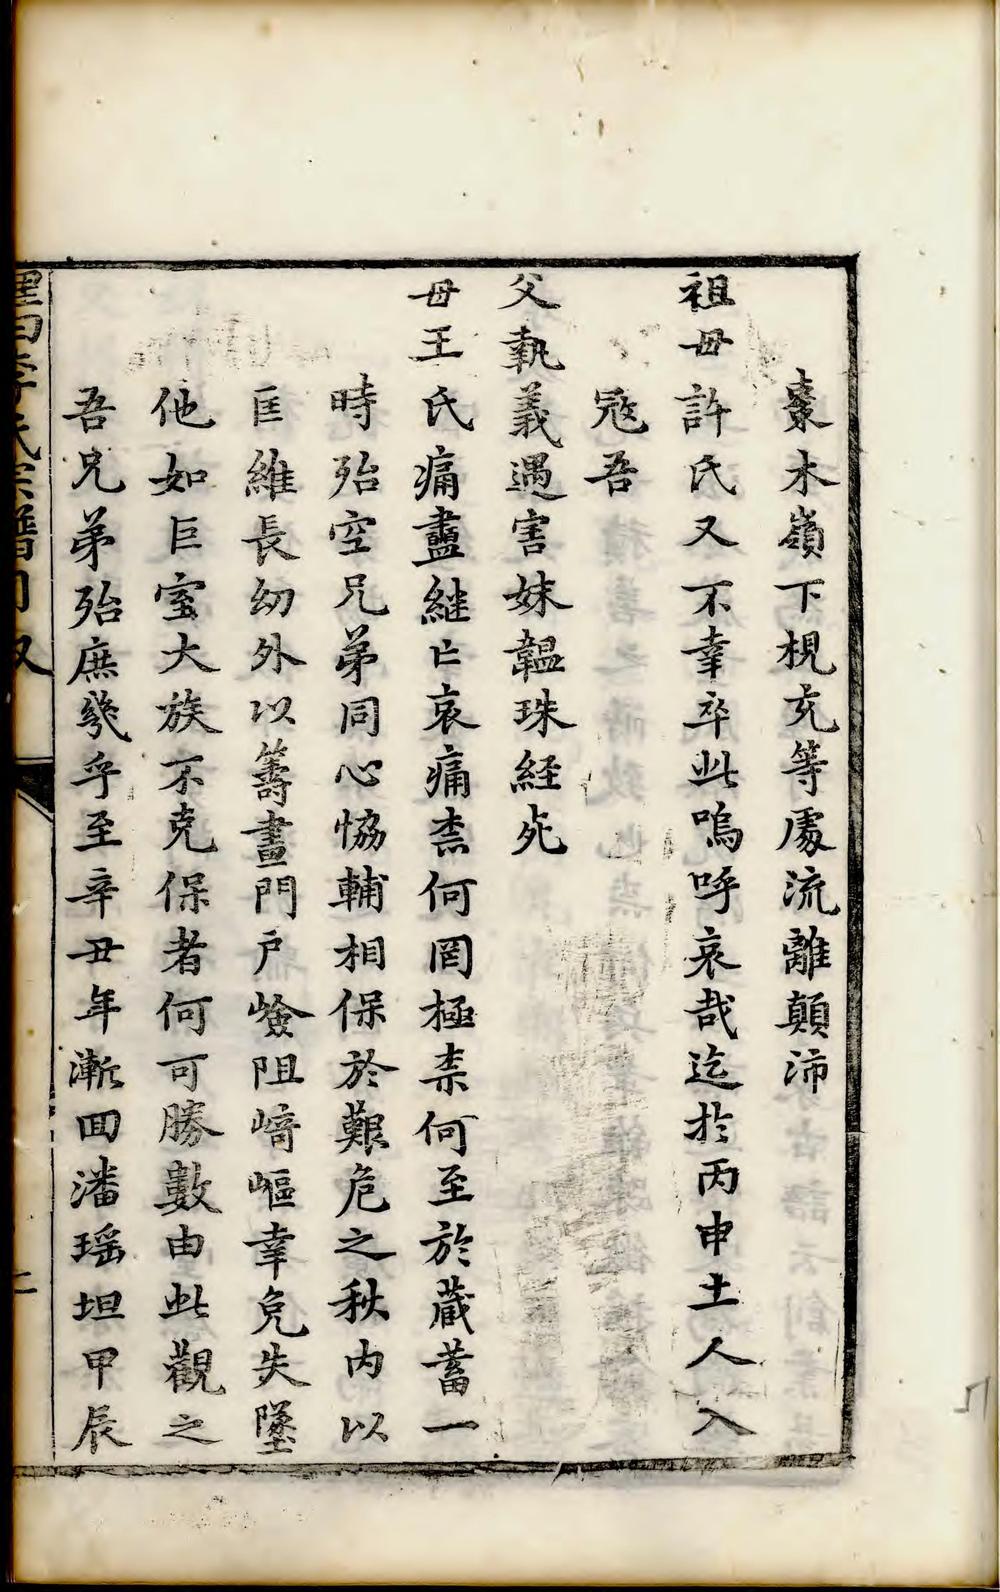 棗木嶺下梘充等處流離顛沛
祖母許氏又不幸卒此嗚呼哀哉迄於丙申土人入
寇吾
父執義遇害妹韞珠経死
母王氏痛盡継亡哀痛柰何罔極柰何至於蔵蓄一
時殆空兄弟同心恊輔相保於艱危之秋内以
匡維長幼外以籌畫門戶嶮阻﨑嶇幸免失墜
他如巨室大族不克保者何可勝數由此觀之
吾兄弟殆庶幾乎至辛丑年漸回潘瑶坦甲辰
李氏宗譜